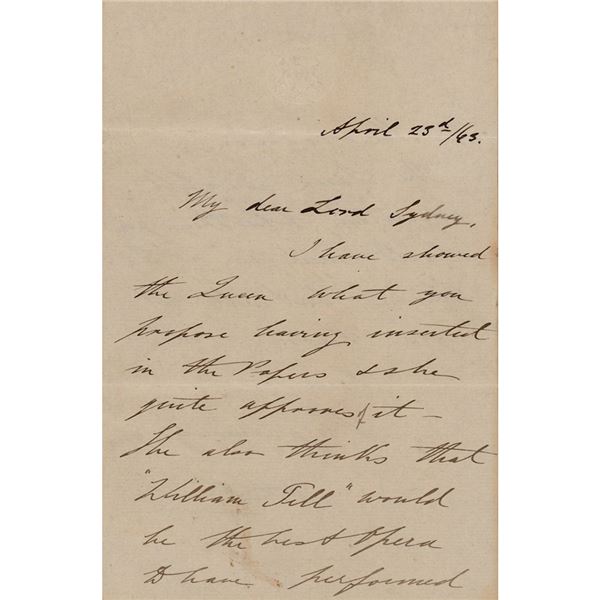 April 23d/63.
My dear Lord Sydney,
I have showed
the Queen what you
propose having inserted
in the Papers & she
quite approves of it —
She also thinks that
"William Tell" would
be the best Opera
to have performed